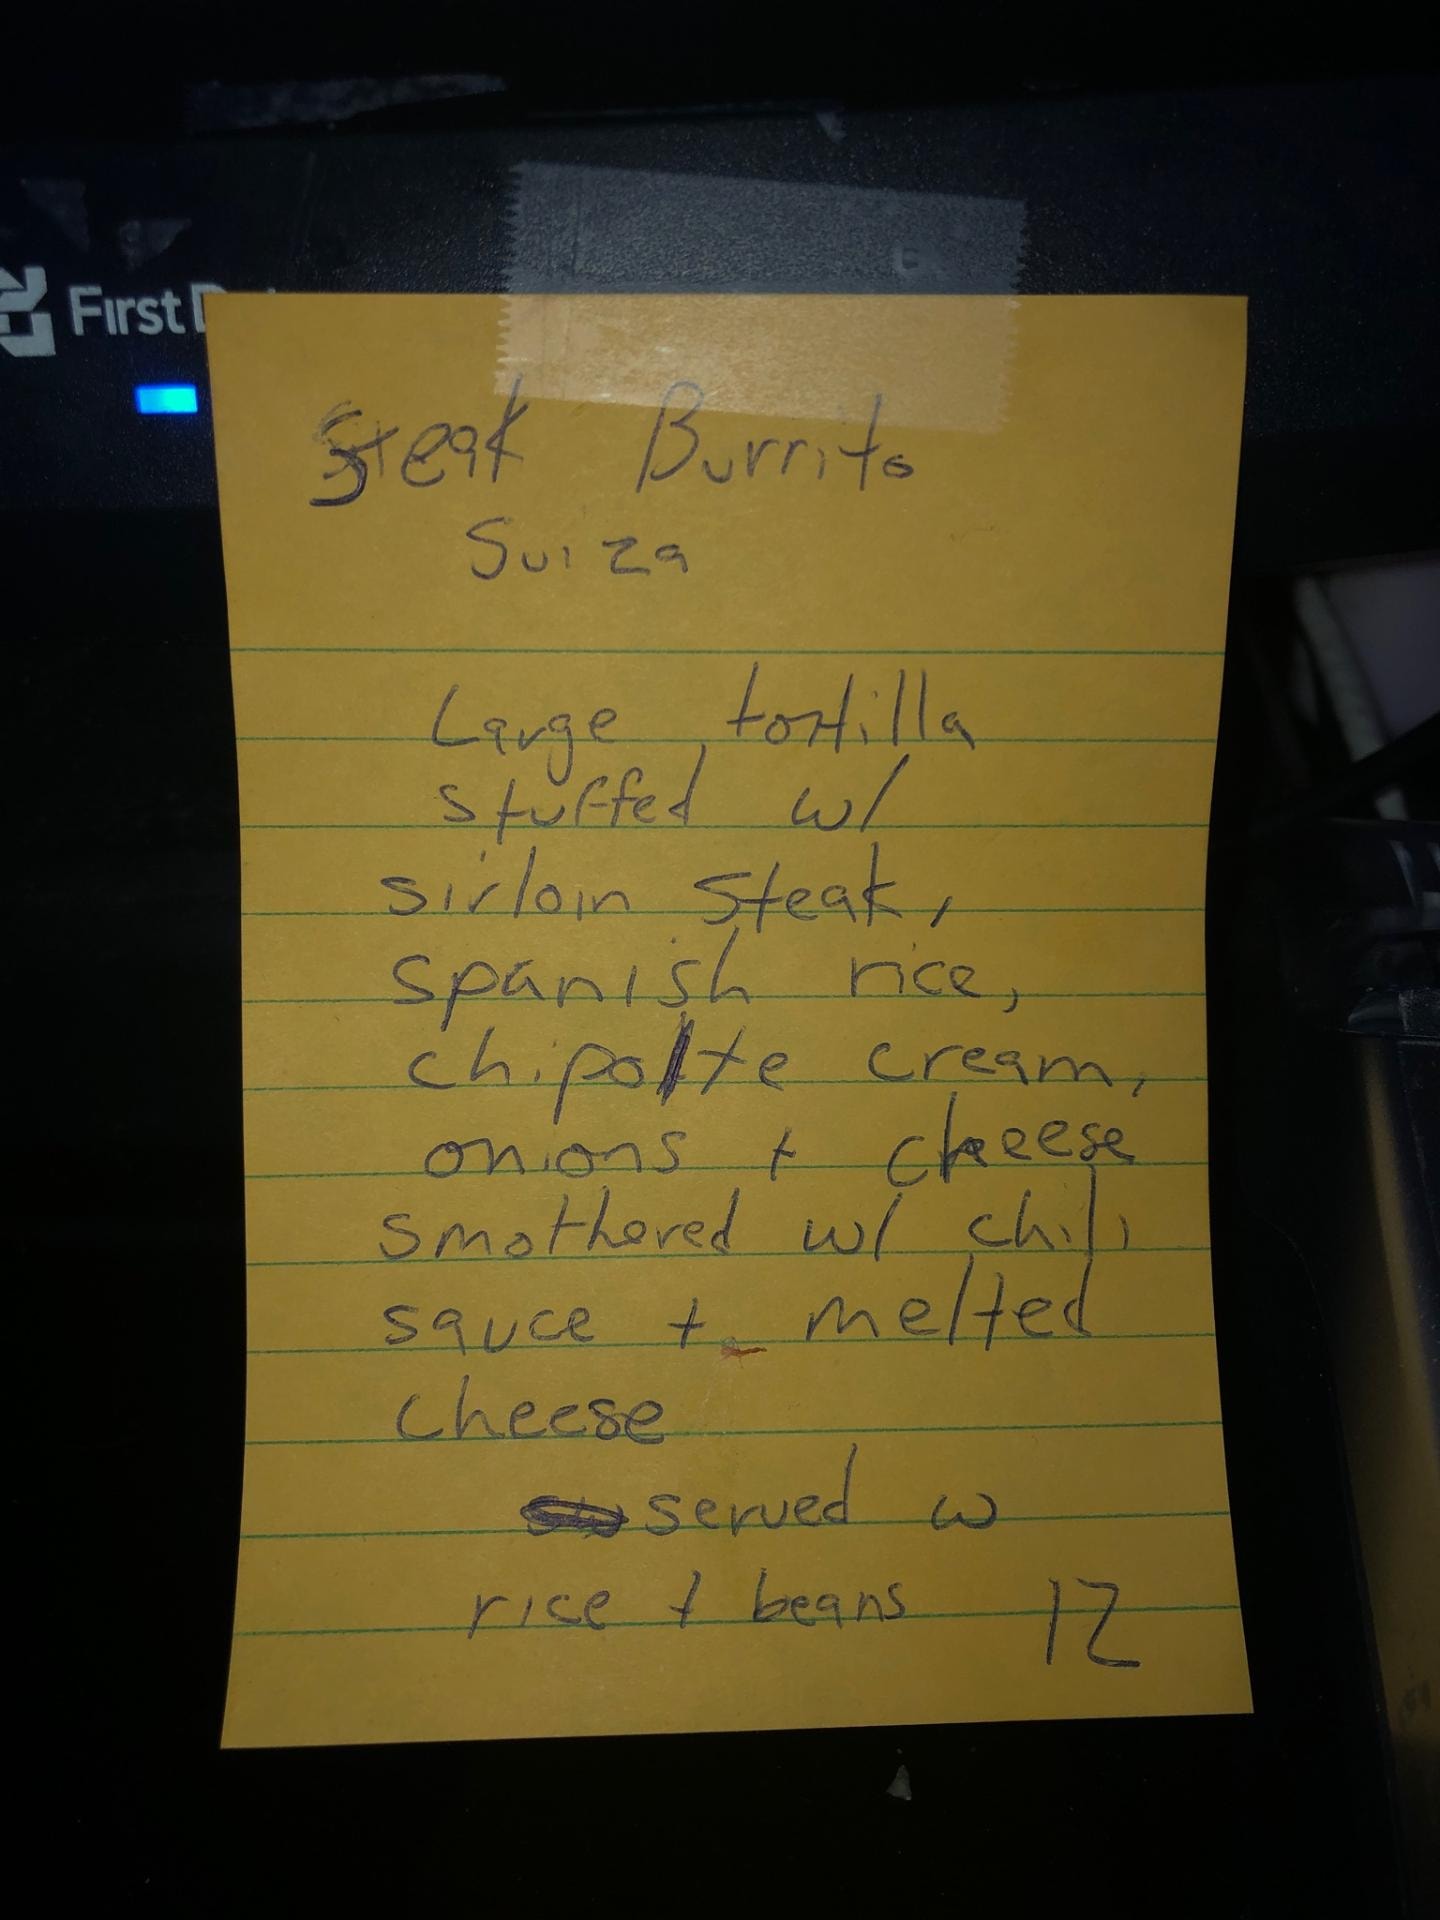 First D
Steak Burrito
Suiza
Large tortilla
stuffed w/
sirloin steak,
spanish rice,
chipolte cream,
onions + cheese
smothered w/ chili
sauce + melted
cheese
served w
rice + beans 12